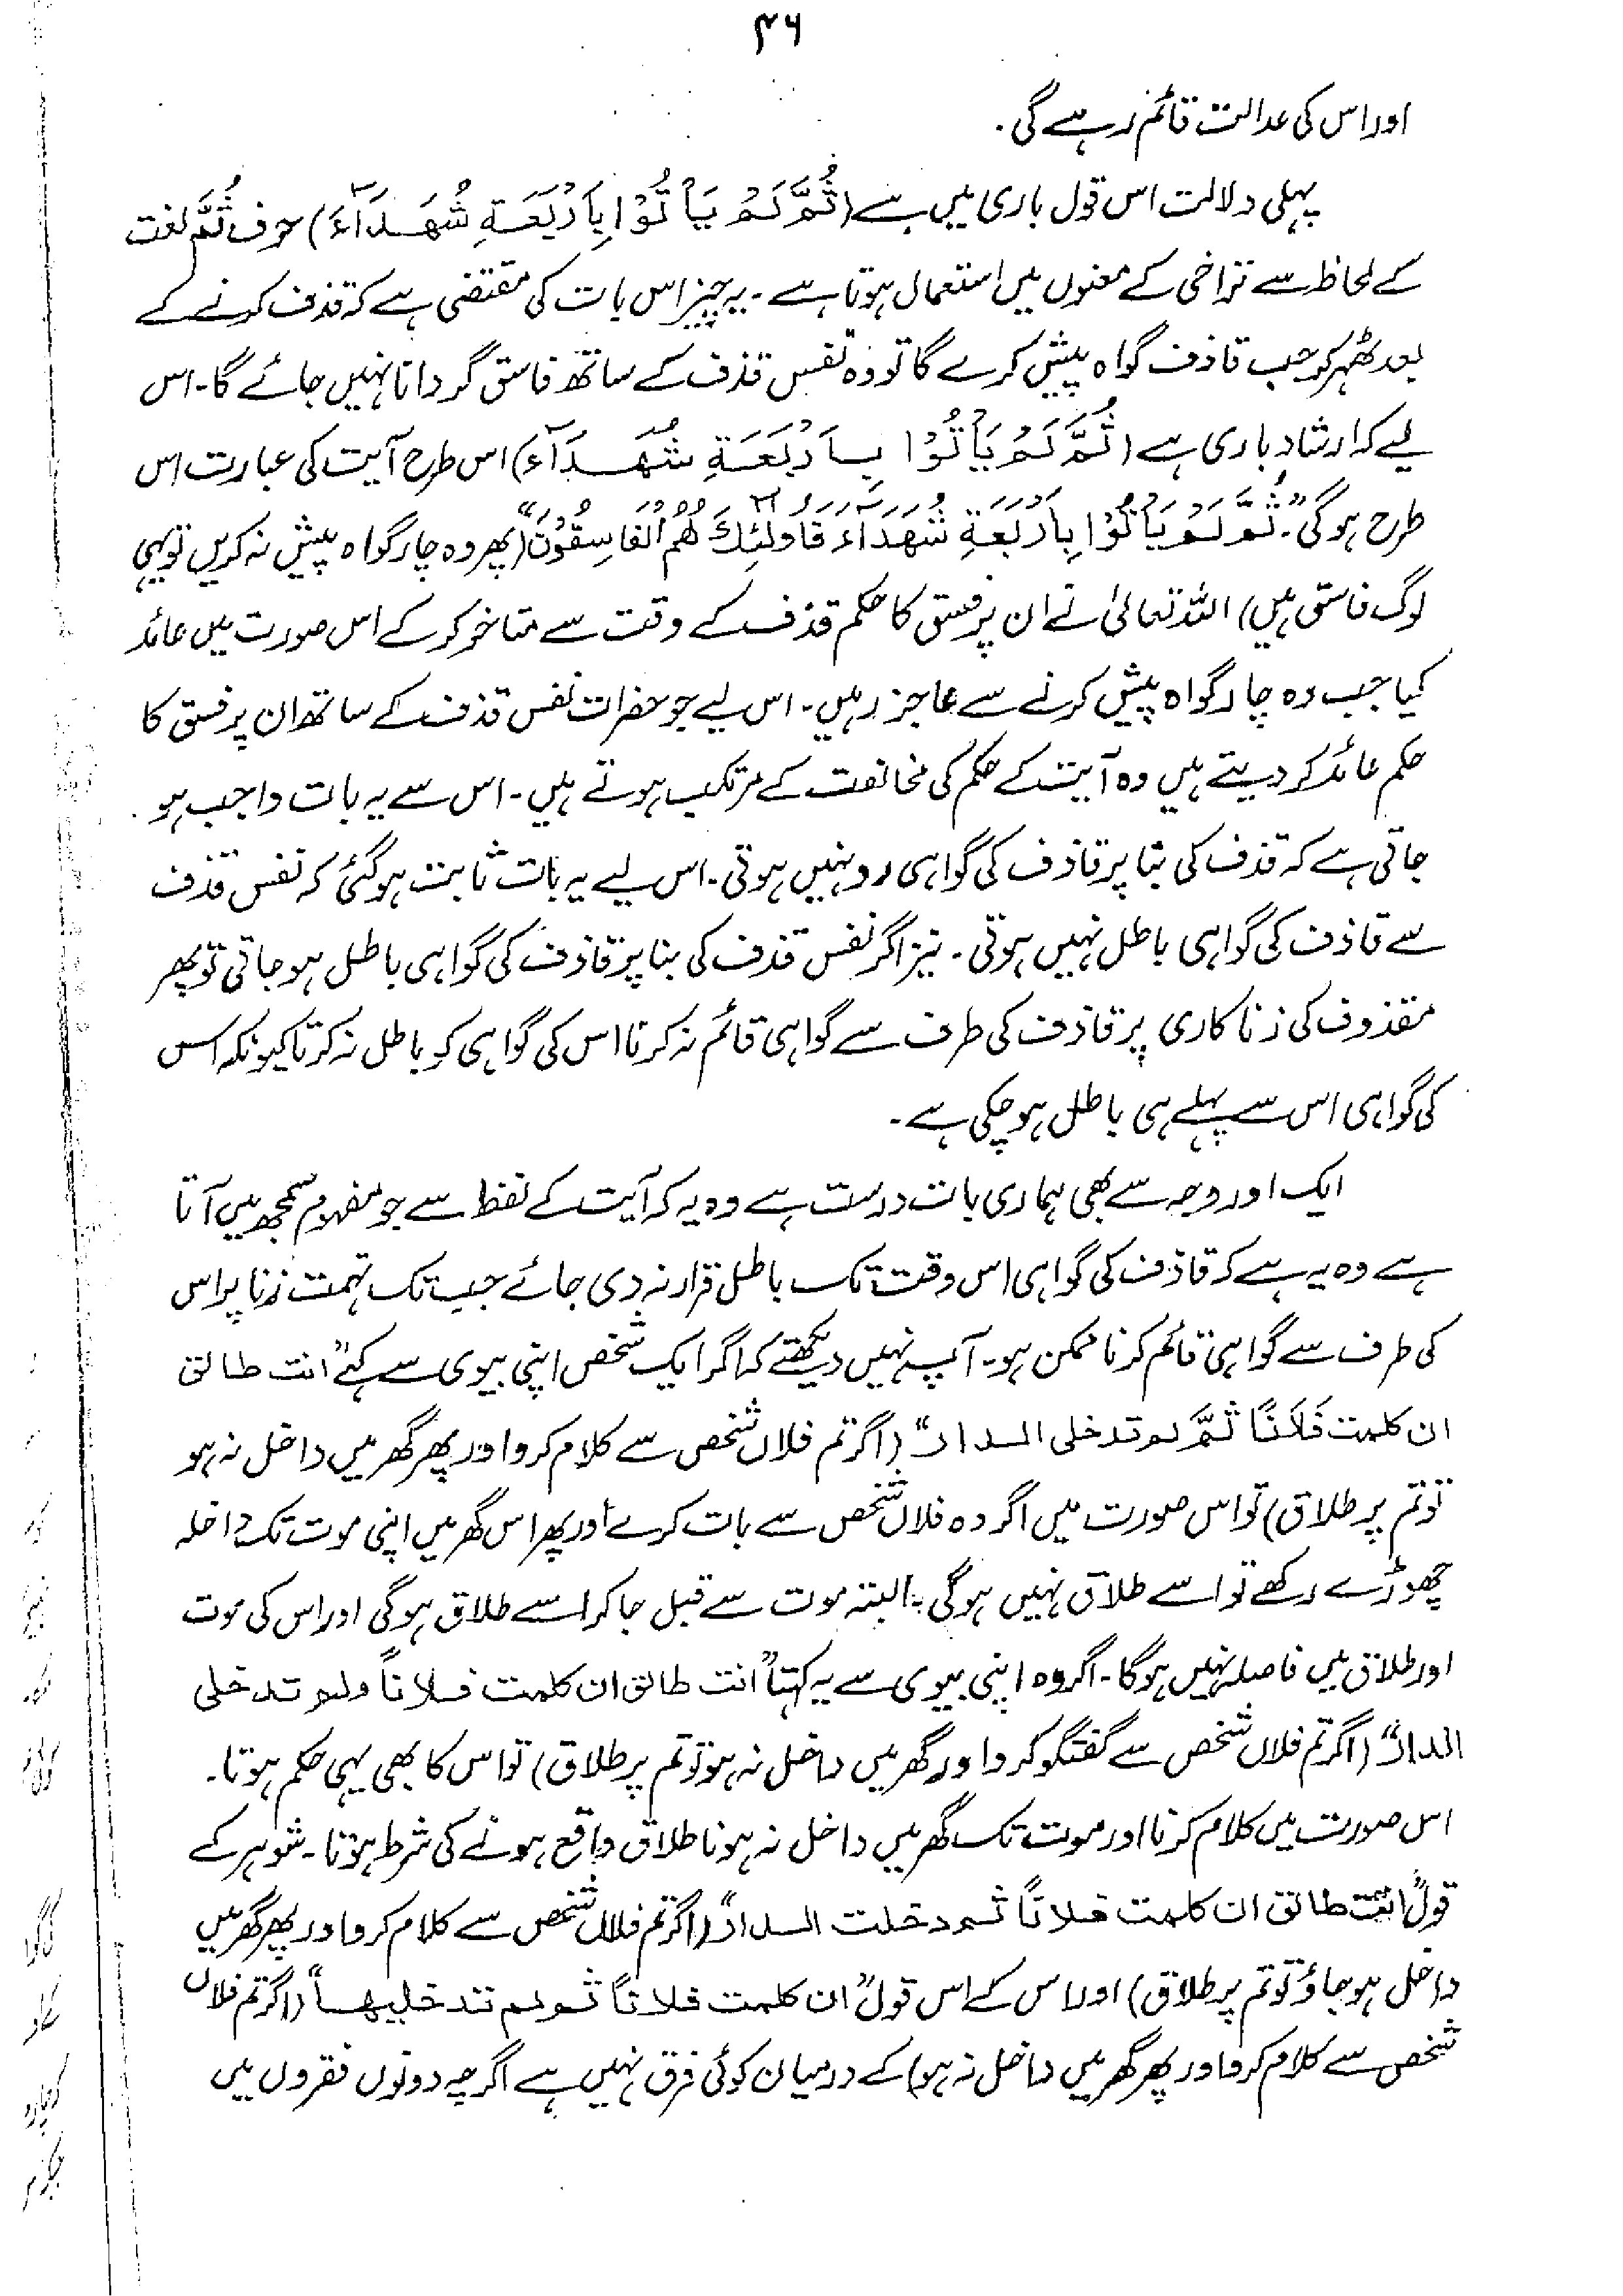 ۴۶
اور اس کی عدالت قائم رہے گی.
پہلی دلالت اس قول باری میں ہے (ثُمَّ لَمْ يَأْتُوْا بِاَرْبَعَةِ شُهَدَآءَ) حرف ثُمَّ لغت
کے لحاظ سے تراخی کے معنوں میں استعمال ہوتا ہے۔ یہ چیز اس بات کی مقتضی ہے کہ قذف کرنے کے
بعد ٹھہر کر جب قاذف گواہ پیش کرے گا تو وہ نفس قذف کے ساتھ فاسق گردانا نہیں جائے گا۔ اس
لیے کہ ارشاد باری ہے (ثُمَّ لَمْ يَأْتُوْا بِاَرْبَعَةِ شُهَدَآءَ) اس طرح آیت کی عبارت اس
طرح ہو گی۔ "ثُمَّ لَمْ يَأْتُوْا بِاَرْبَعَةِ شُهَدَآءَ فَاُولٰٓئِكَ هُمُ الْفَاسِقُوْنَ" (پھر وہ چار گواہ پیش نہ کریں تو یہی
لوگ فاسق ہیں) اللہ تعالیٰ نے ان پر فسق کا حکم قذف کے وقت سے متاخر کر کے اس صورت میں عائد
کیا جب وہ چار گواہ پیش کرنے سے عاجز رہیں۔ اس لیے جو حضرات نفس قذف کے ساتھ ان پر فسق کا
حکم عائد کر دیتے ہیں وہ آیت کے حکم کی مخالفت کے مرتکب ہوتے ہیں۔ اس سے یہ بات واجب ہو
جاتی ہے کہ قذف کی بنا پر قاذف کی گواہی رد نہیں ہوتی۔ اس لیے یہ بات ثابت ہو گئی کہ نفس قذف
سے قاذف کی گواہی باطل نہیں ہوتی۔ نیز اگر نفس قذف کی بنا پر قاذف کی گواہی باطل ہو جاتی تو پھر
مقذوف کی زنا کاری پر قاذف کی طرف سے گواہی قائم نہ کرنا اس کی گواہی کو باطل نہ کرتا کیونکہ اس
کی گواہی اس سے پہلے ہی باطل ہو چکی ہے۔
ایک اور وجہ سے بھی ہماری بات درست ہے وہ یہ کہ آیت کے لفظ سے جو مفہوم سمجھ میں آتا
ہے وہ یہ ہے کہ قاذف کی گواہی اس وقت تک باطل قرار نہ دی جائے جب تک تہمت زنا پر اس
کی طرف سے گواہی قائم کرنا ممکن ہو۔ آپ نہیں دیکھتے کہ اگر ایک شخص اپنی بیوی سے کہے "انت طالق
ان کلمت فَلَانًا ثُمَّ لم تدخلی الدار" (اگر تم فلاں شخص سے کلام کرو اور پھر گھر میں داخل نہ ہو
تو تم پر طلاق) تو اس صورت میں اگر وہ فلاں شخص سے بات کرے اور پھر اس گھر میں اپنی موت تک داخلہ
چھوڑے رکھے تو اسے طلاق نہیں ہو گی۔ البتہ موت سے قبل جا کر اسے طلاق ہو گی اور اس کی موت
اور طلاق میں فاصلہ نہیں ہو گا۔ اگر وہ اپنی بیوی سے یہ کہتا "انت طالق ان کلمت فلاناً ولم تدخلی
الدار" (اگر تم فلاں شخص سے گفتگو کرو اور گھر میں داخل نہ ہو تو تم پر طلاق) تو اس کا بھی یہی حکم ہوتا۔
اس صورت میں کلام کرنا اور موت تک گھر میں داخل نہ ہونا طلاق واقع ہونے کی شرط ہوتا۔ شوہر کے
قول "انت طالق ان کلمت فلاناً ثم دخلت الدار" (اگر تم فلاں شخص سے کلام کرو اور پھر گھر میں
داخل ہو جاؤ تو تم پر طلاق) اور اس کے اس قول "ان کلمت فلاناً ثم لم تدخلیها" (اگر تم فلاں
شخص سے کلام کرو اور پھر گھر میں داخل نہ ہو) کے درمیان کوئی فرق نہیں ہے اگرچہ دونوں فقروں میں